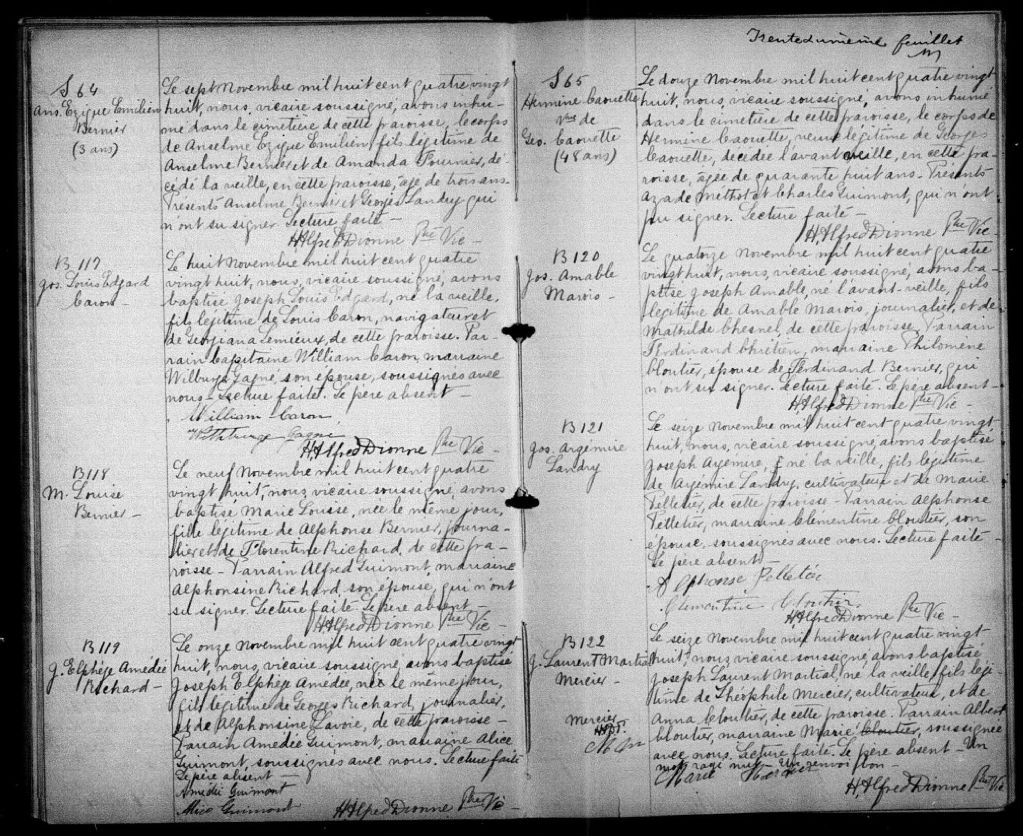 S 64
Ans. Ezique Emilien
Bernier
(3 ans)
Le sept Novembre mil huit cent quatre vingt
huit, nous, vicaire soussigné, avons inhu-
mé dans le cimetière de cette paroisse, le corps
de Anselme Ezique Emilien, fils légitime de
Anselme Bernier et de Amanda Fournier, dé-
cédé la veille, en cette paroisse, âgé de trois ans.
Présents Anselme Bernier et Georges Landry qui
n'ont su signer. Lecture faite —
H. Alfred Dionne Ptre Vic —
B 117
Jos. Louis Edgard
Caron —
Le huit Novembre mil huit cent quatre
vingt huit, nous, vicaire soussigné, avons
baptisé Joseph Louis Edgard, né la veille,
fils légitime de Louis Caron, navigateur et
de Georgiana Lemieux, de cette paroisse. Par-
rain Capitaine William Caron, marraine
Gagné, son épouse, soussignés avec
nous — Lecture faite. Le père absent —
William Caron
Gagné
H. Alfred Dionne Ptre Vic —
B 118
M. Louise
Bernier —
Le neuf Novembre mil huit cent quatre
vingt huit, nous, vicaire soussigné, avons
baptisé Marie Louise, née le même jour,
fille légitime de Alphonse Bernier, journa-
lier et de Florentine Richard, de cette pa-
roisse — Parrain Alfred Guimont, marraine
Alphonsine Richard, son épouse, qui n'ont
su signer. Lecture faite. Le père absent —
H. Alfred Dionne Ptre Vic —
B 119
J. Elphège Amédée
Richard —
Le onze Novembre mil huit cent quatre vingt
huit, nous, vicaire soussigné, avons baptisé
Joseph Elphège Amédée, né le même jour,
fils légitime de Georges Richard, journalier,
et de Alphonsine Lavoie, de cette paroisse —
Parrain Amédée Guimont, marraine Alice
Guimont, soussignés avec nous. Lecture faite
Le père absent —
Amédé Guimont
Alice Guimont
H. Alfred Dionne Ptre Vic —
Trente d'unième feuillet
S 65
Hermine Caouette
Vve de
Geo. Caouette
(48 ans)
Le douze Novembre mil huit cent quatre vingt
huit, nous, vicaire soussigné, avons inhumé
dans le cimetière de cette paroisse, le corps de
Hermine Caouette, veuve légitime de Georges
Caouette, décédée l'avant veille, en cette pa-
roisse, âgée de quarante huit ans — Présents
Azade Méthot et Charles Guimont, qui n'ont
pu signer. Lecture faite —
H. Alfred Dionne Ptre Vic —
B 120
Jos. Amable
Marois —
Le quatorze Novembre mil huit cent quatre
vingt huit, nous, vicaire soussigné, avons ba-
ptisé Joseph Amable, né l'avant-veille, fils
légitime de Amable Marois, journalier, et de
Mathilde Chesnel, de cette paroisse. Parrain
Ferdinand Chrétien, marraine Philomène
Cloutier, épouse de Ferdinand Bernier, qui
n'ont su signer. Lecture faite. Le père absent —
H. Alfred Dionne Ptre Vic —
B 121
Jos. Argémire
Landry
Le seize Novembre mil huit cent quatre vingt-
huit, nous, vicaire soussigné, avons baptisé
Joseph né la veille, fils légitime
de Argémire Landry, cultivateur et de Marie
Pelletier, de cette paroisse — Parrain Alphonse
Pelletier, marraine Clémentine Cloutier, son
épouse, soussignés avec nous. Lecture faite —
Le père absent —
Alphonse Pelletier
Clementine Cloutier
H. Alfred Dionne Ptre Vic —
B 122
J. Laurent Martial
Mercier —
Mercier
Le seize Novembre mil huit cent quatre vingt-
huit, nous, vicaire soussigné, avons baptisé
Joseph Laurent Martial, né la veille, fils légi-
time de Théophile Mercier, cultivateur, et de
Anna Cloutier, de cette paroisse. Parrain Albert
Cloutier, marraine Marie Cloutier, soussignée
avec nous. Lecture faite. Le père absent — Un
mot rayé nul — Un renvoi bon —
Marie Mercier
H. Alfred Dionne Ptre Vic